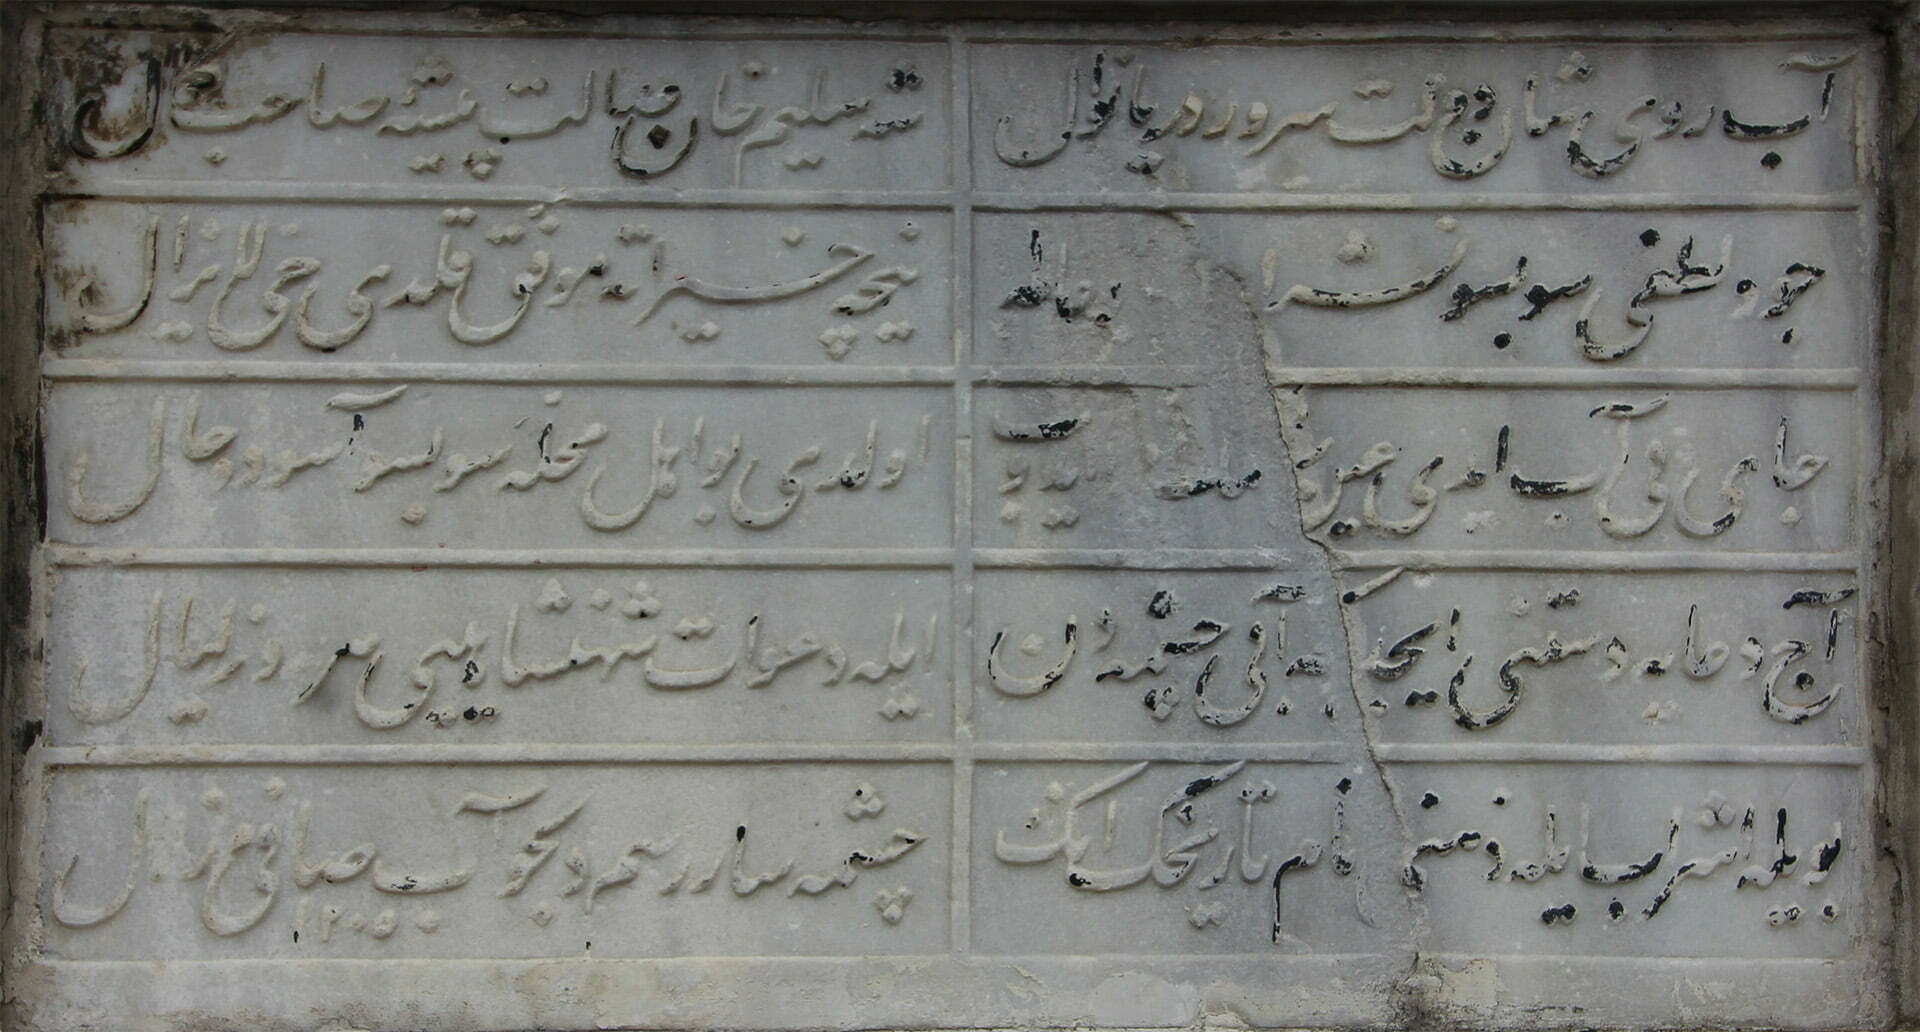 آب روی شان دولت سرور دریا نوال
شه سلیم خان عدالت پیشه صاحب کمال
جود لطفی سو بسو
نیچه خیراته موفق قلدی حی لایزال
جای بی آب ایدی عین
اولدی بو اهل محله سو بسو آسوده حال
آچ دعایه دستنی ایچدکجه آنی چشمه دن
ایله دعوات شهنشاهیی هر روز لیال
بویله اشراب ایله ذهنی نام تاریخک انک
چشمه سار رسم دلجو آب صافی زلال
١٢٠٥